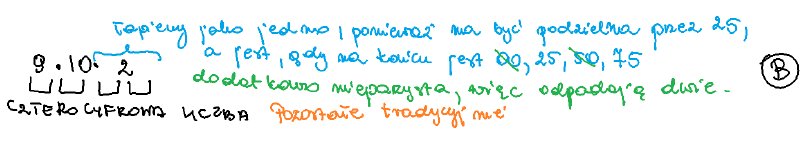 Łapiemy jako jedno, ponieważ ma być podzielna przez 25,
a jest, gdy na końcu jest 00, 25, 50, 75
9 · 10 · 2
dodatkowo nieparzysta, więc odpadają dwie.
B
CZTEROCYFROWA LICZBA Pozostałe tradycyjnie